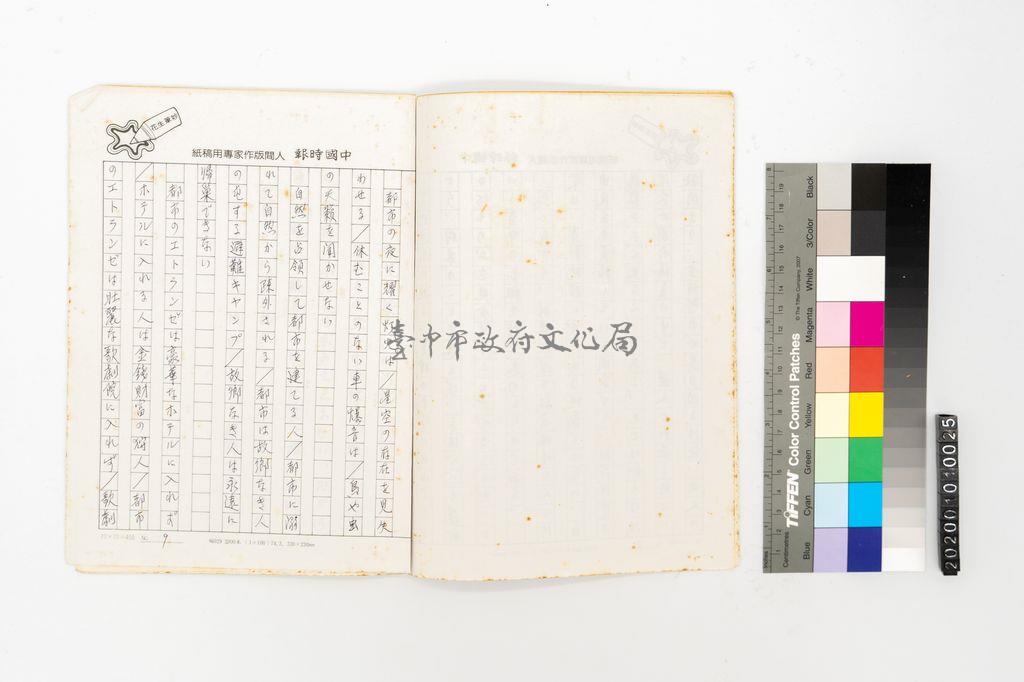 花生筆鈔
中國時報 人間版作家專用稿紙
都市の夜に耀く は/星空の存在を見失
わせる/休むことのない車の爆音は/鳥や虫
の天籟を聞かせない
自然を占領して都市を建てる人/都市に溺
れて自然から疎外される/都市は故郷なき人
の屯する避難キャンプ/故郷なき人は永遠に
帰巣できない
都市のエトランゼは豪華なホテルに入れず
/ホテルに入れる人は金錢財宝の狩人/都市
のエトランゼは壮麗な歌劇院に入れず/歌劇
9
臺中市政府文化局
TIFFEN Color Control Patches
© The Tiffen Company, 2007
Centimetres
Inches
Blue
Cyan
Green
Yellow
Red
Magenta
White
3/Color
Black
20200101 0025